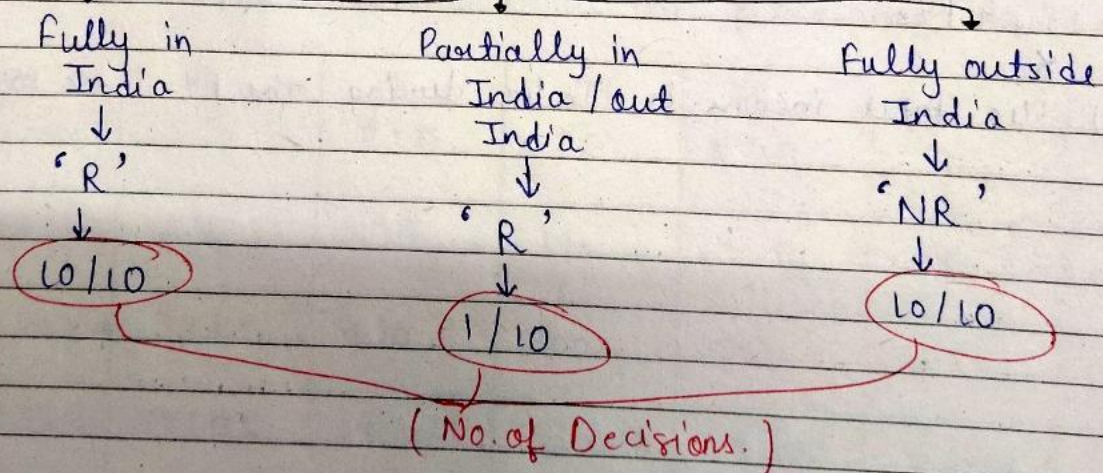 Fully in
India
↓
'R'
↓
10/10
Partially in
India / out
India
↓
'R'
↓
1/10
Fully outside
India
↓
'NR'
↓
10/10
(No. of Decisions.)